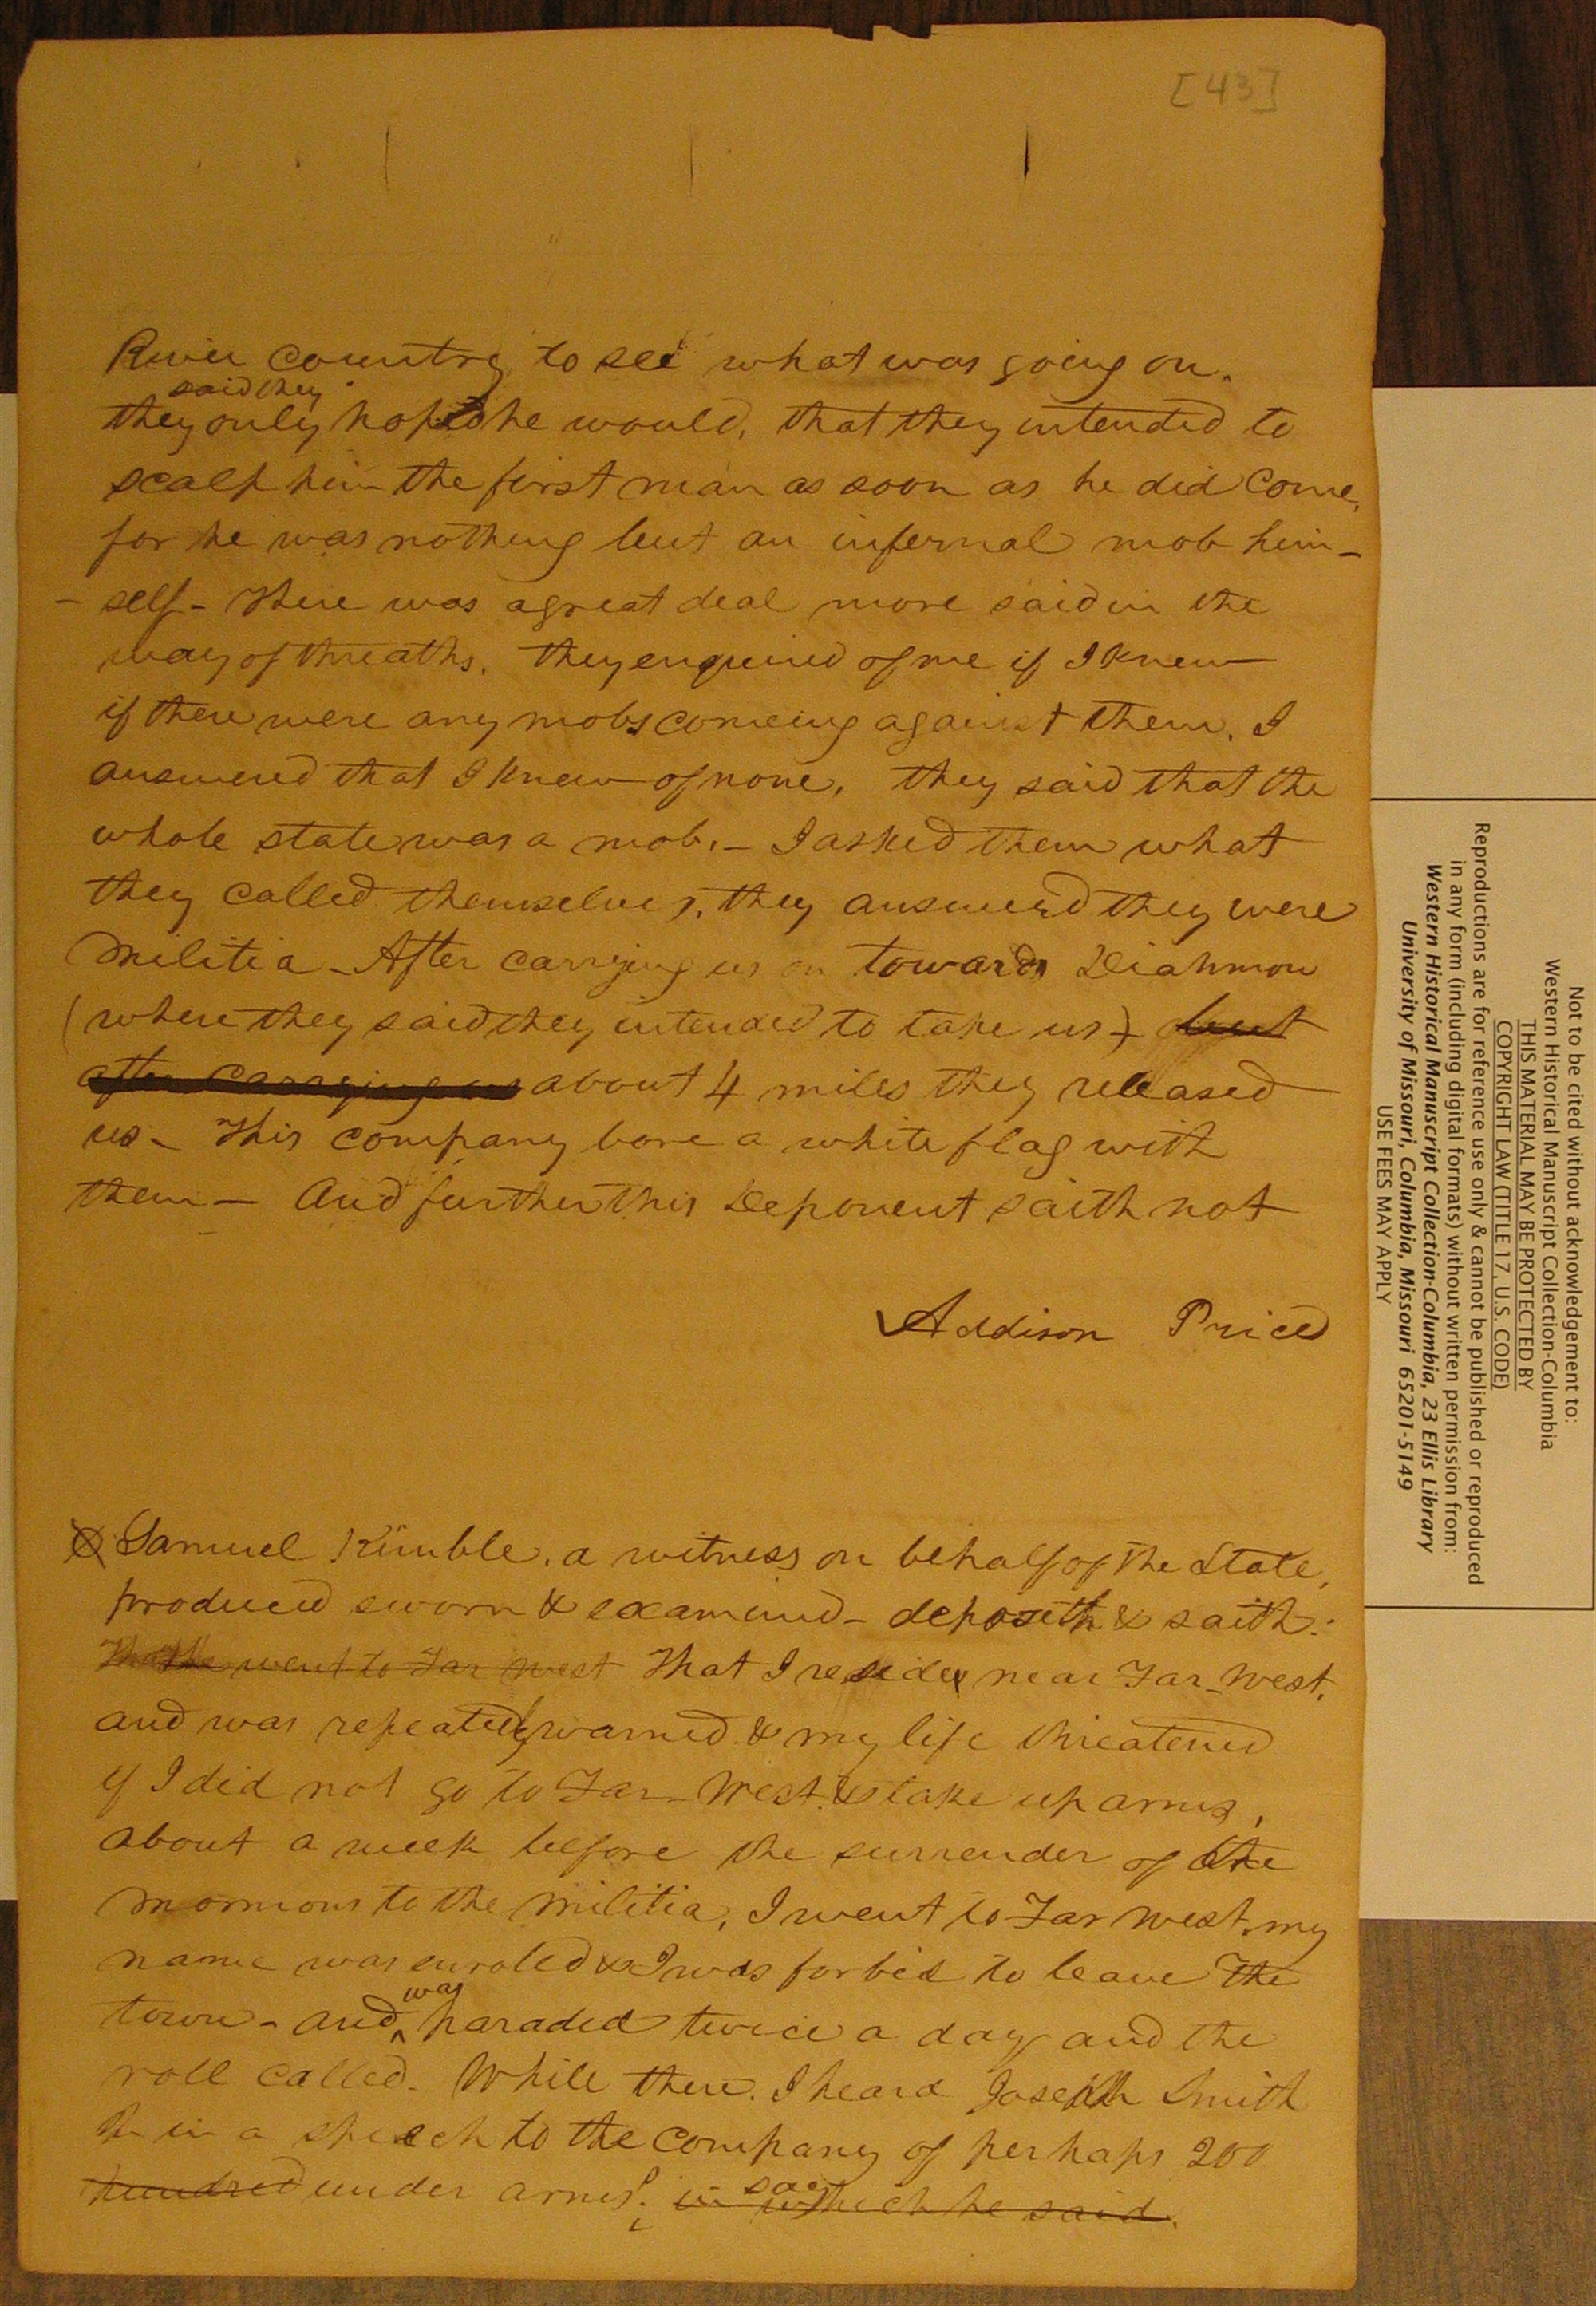 [43]
River country, to see what was going on.
said they
they only hoped he would, that they intended to
scalp him the first man as soon as he did come,
for he was nothing but an infernal mob him-
- self - There was a great deal more said in the
way of threaths. they enquired of me if I knew
if there were any mobs comeing against them, I
answered that I knew of none, they said that the
whole state was a mob. - I asked them what
they called themselves, they answered they were
Militia - After carrying us on towards Diahmon
(where they said they intended to take us) but
after carrying us about 4 miles they released
us - This company bore a white flag with
them - And further this Deponent saith not
Addison Price
Samuel Kimble, a witness on behalf of the State,
produced sworn & examined - deposeth & saith:
That he went to Far West That I reside near Far-West,
and was repeatedly warned & my life threatened
if I did not go to Far-West & take up arms,
about a week before the surrender of the
mormons to the militia, I went to Far West, my
name was enroled & I was forbid to leave the
was
town - and paraded twice a day and the
roll called. While there. I heard Joseph Smith
Jr in a speech to the company of perhaps 200
say
hundred under arms; in which he said.
Not to be cited without acknowledgement to:
Western Historical Manuscript Collection-Columbia
THIS MATERIAL MAY BE PROTECTED BY
COPYRIGHT LAW (TITLE 17, U.S. CODE)
Reproductions are for reference use only & cannot be published or reproduced
in any form (including digital formats) without written permission from:
Western Historical Manuscript Collection-Columbia, 23 Ellis Library
University of Missouri, Columbia, Missouri 65201-5149
USE FEES MAY APPLY